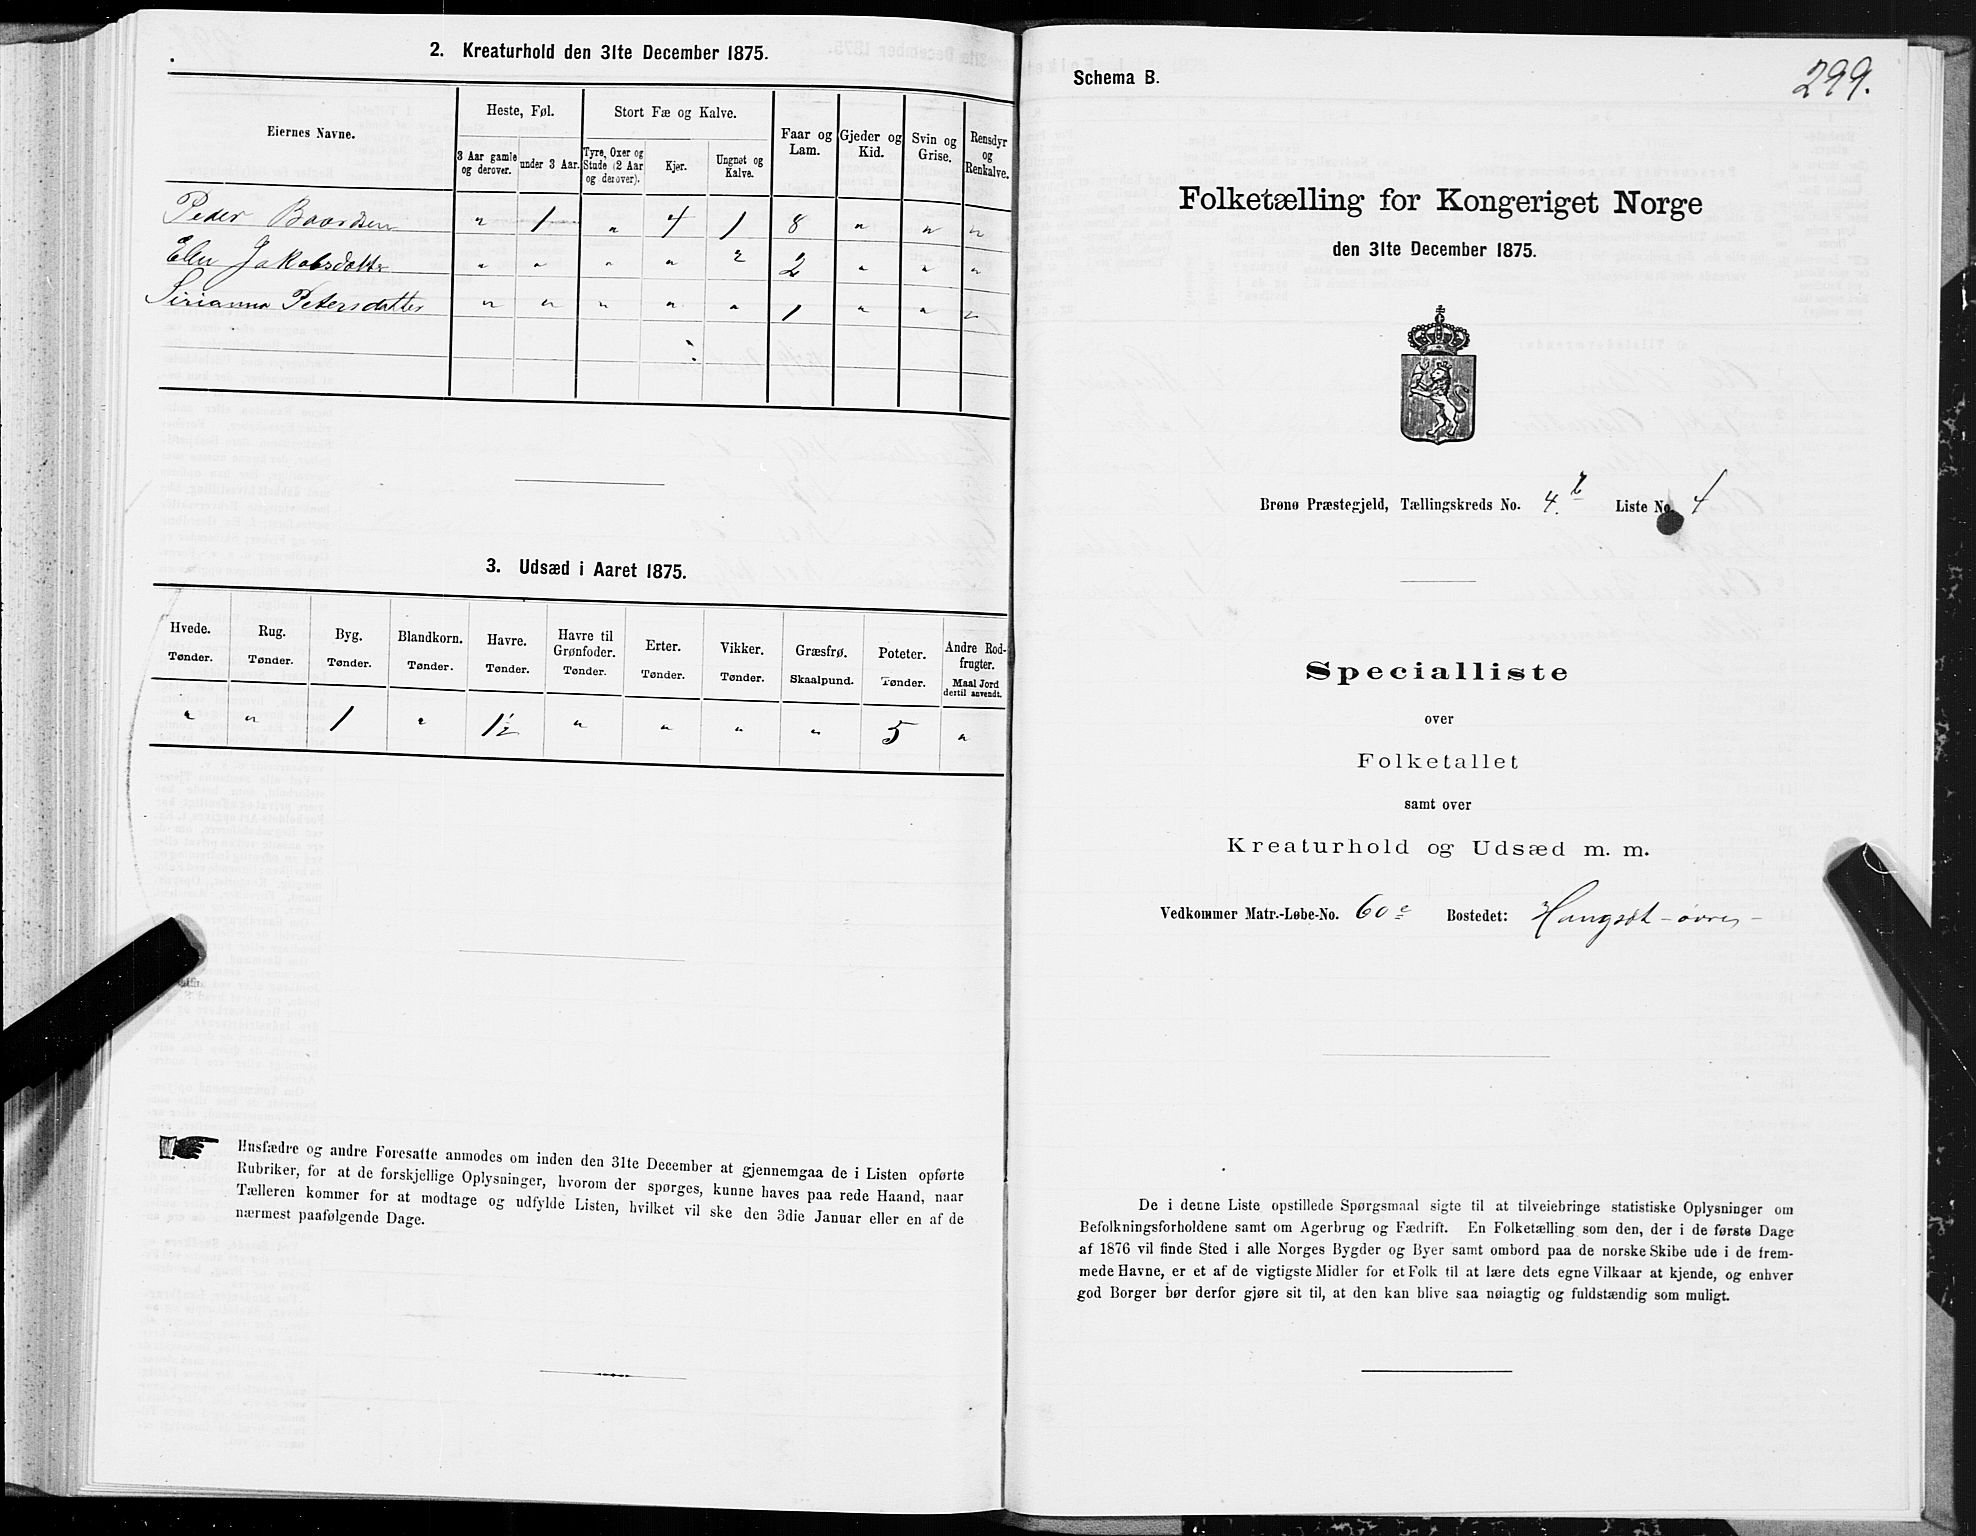 2. Kreaturhold den 31te December 1875.
Eiernes Navne.
Heste, Føl.
Stort Fæ og Kalve.
Faar og Lam.
Gjeder og Kid.
Svin og Grise.
Rensdyr og Renkalve.
3 Aar gamle og derover.
under 3 Aar.
Tyre, Oxer og Stude (2 Aar og derover).
Kjør.
Ungnøt og Kalve.
Peder Baardsen " 1 " 4 1 8 " " "
Elen Jakobsdatter " " " " 2 2 " " "
Sirianna Petersdatter " " " " " 1 " " "
3. Udsæd i Aaret 1875.
Hvede. Tønder.
Rug. Tønder.
Byg. Tønder.
Blandkorn. Tønder.
Havre. Tønder.
Havre til Grønfoder. Tønder.
Erter. Tønder.
Vikker. Tønder.
Græsfrø. Skaalpund.
Poteter. Tønder.
Andre Rodfrugter. Maal Jord dertil anvendt.
" " 1 " 1½ " " " " 5 "
Husfædre og andre Foresatte anmodes om inden den 31te December at gjennemgaa de i Listen opførte
Rubriker, for at de forskjellige Oplysninger, hvorom der spørges, kunne haves paa rede Haand, naar
Tælleren kommer for at modtage og udfylde Listen, hvilket vil ske den 3die Januar eller en af de
nærmest paafølgende Dage.
Schema B.
299.
Folketælling for Kongeriget Norge
den 31te December 1875.
Brønø Præstegjeld, Tællingskreds No. 4.b Liste No. 4
Specialliste
over
Folketallet
samt over
Kreaturhold og Udsæd m. m.
Vedkommer Matr.-Løbe-No. 60 Bostedet: Hangsøt - øvre -
De i denne Liste opstillede Spørgsmaal sigte til at tilveiebringe statistiske Oplysninger om
Befolkningsforholdene samt om Agerbrug og Fædrift. En Folketælling som den, der i de første Dage
af 1876 vil finde Sted i alle Norges Bygder og Byer samt ombord paa de norske Skibe ude i de frem-
mede Havne, er et af de vigtigste Midler for et Folk til at lære dets egne Vilkaar at kjende, og enhver
god Borger bør derfor gjøre sit til, at den kan blive saa nøiagtig og fuldstændig som muligt.